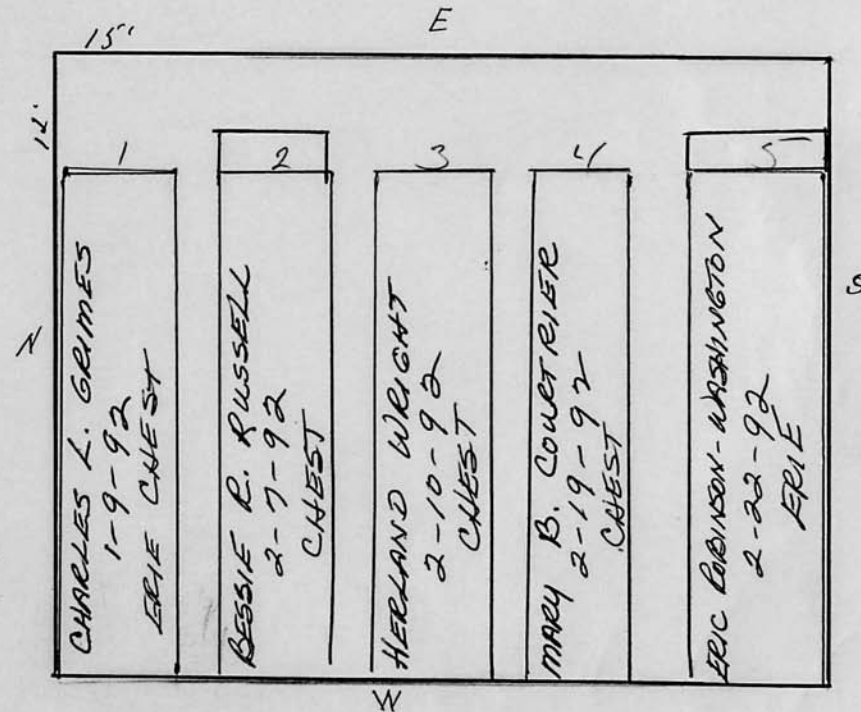 15'
E
12'
1
2
3
4
5
N
S
CHARLES L. GRIMES
1-9-92
ERIE CHEST
BESSIE R. RUSSELL
2-7-92
CHEST
HERLAND WRIGHT
2-10-92
CHEST
MARY B. COURTRIER
2-19-92
CHEST
ERIC ROBINSON-WASHINGTON
2-22-92
ERIE
W